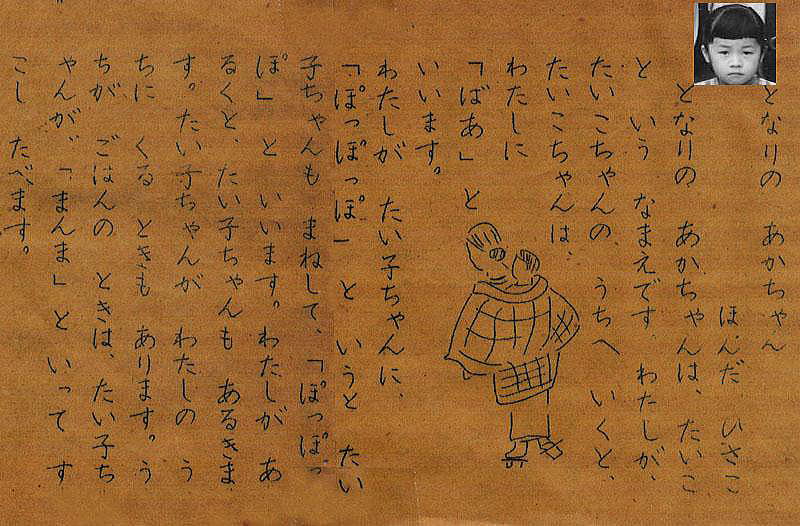 となりの　あかちゃん
ほんだ　ひさこ
となりの　あかちゃんは、たいこ
と　いう　なまえです。わたしが、
たいこちゃんの、うちへ　いくと、
たいこちゃんは、
わたしに
「ばあ」　と
いいます。
わたしが　たい子ちゃんに、
「ぽっぽっぽ」　と　いうと　たい
子ちゃんも　まねして、「ぽっぽっ
ぽ」　と　いいます。わたしが　あ
るくと、たい子ちゃんも　あるきま
す。たい子ちゃんが　わたしの　う
ちに　くる　ときも　あります。う
ちが　ごはんの　ときは、たい子ち
ゃんが、「まんま」と　いって　す
こし　たべます。